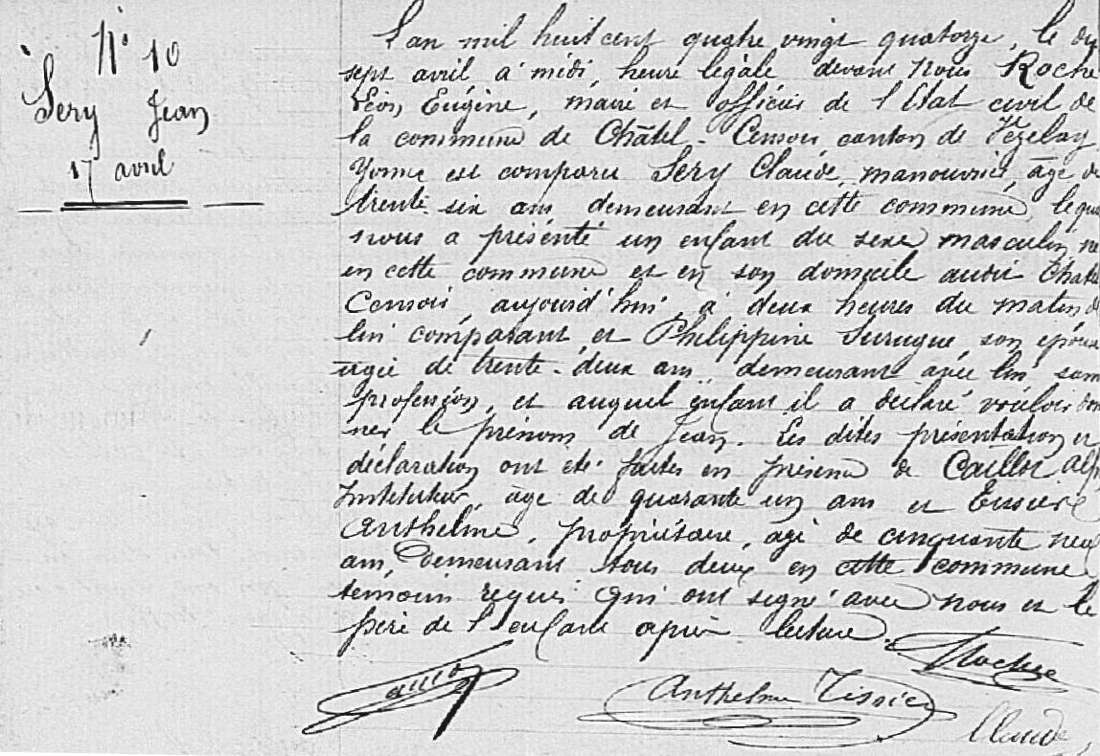 N° 10
Sery Jean
17 avril
L'an mil huit cent quatre vingt quatorze, le dix
sept avril à midi, heure légale devant nous Roche
Léon Eugène, maire et officier de l'Etat civil de
la commune de Châtel-Censoir canton de Vézelay
Yonne est comparu Sery Claude, manouvrier, âgé de
trente-six ans, demeurant en cette commune, lequel
nous a présenté un enfant du sexe masculin, né
en cette commune et en son domicile audit Châtel
Censoir, aujourd'hui, à deux heures du matin de
lui comparant, et Philippine Surugue, son épouse
agée de trente-deux ans demeurant avec lui, sans
profession, et auquel enfant il a déclaré vouloir don
ner le prénom de Jean. Les dites présentation et
déclaration ont été faites en présence de Caillot
Instituteur, âgé de quarante un ans et
Anthelme, propriétaire, agé de cinquante neuf
ans, Demeurant tous deux en cette commune
témoins requis qui ont signé avec nous et le
père de l'enfant après lecture.
Roche
Anthelme Tissier
Claude